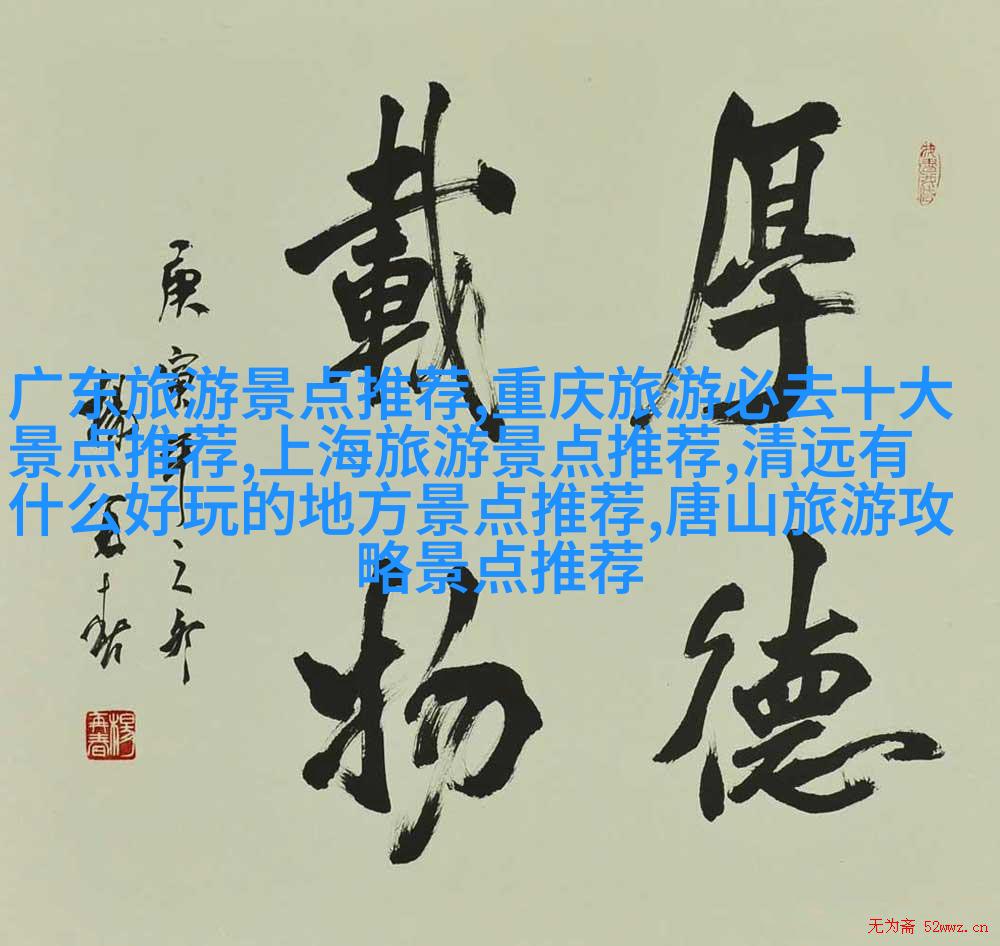 厚德
載物
庚寅年之夘
楊再春
楊再春
广东旅游景点推荐,重庆旅游必去十大
景点推荐,上海旅游景点推荐,清远有
什么好玩的地方景点推荐,唐山旅游攻
略景点推荐
无为斋 52wwz.cn